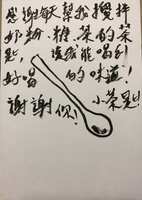 感謝每天幫我攪拌
奶粉、糖、茶的茶
匙，讓我能喝到
好喝的味道！
謝謝你！小茶匙！